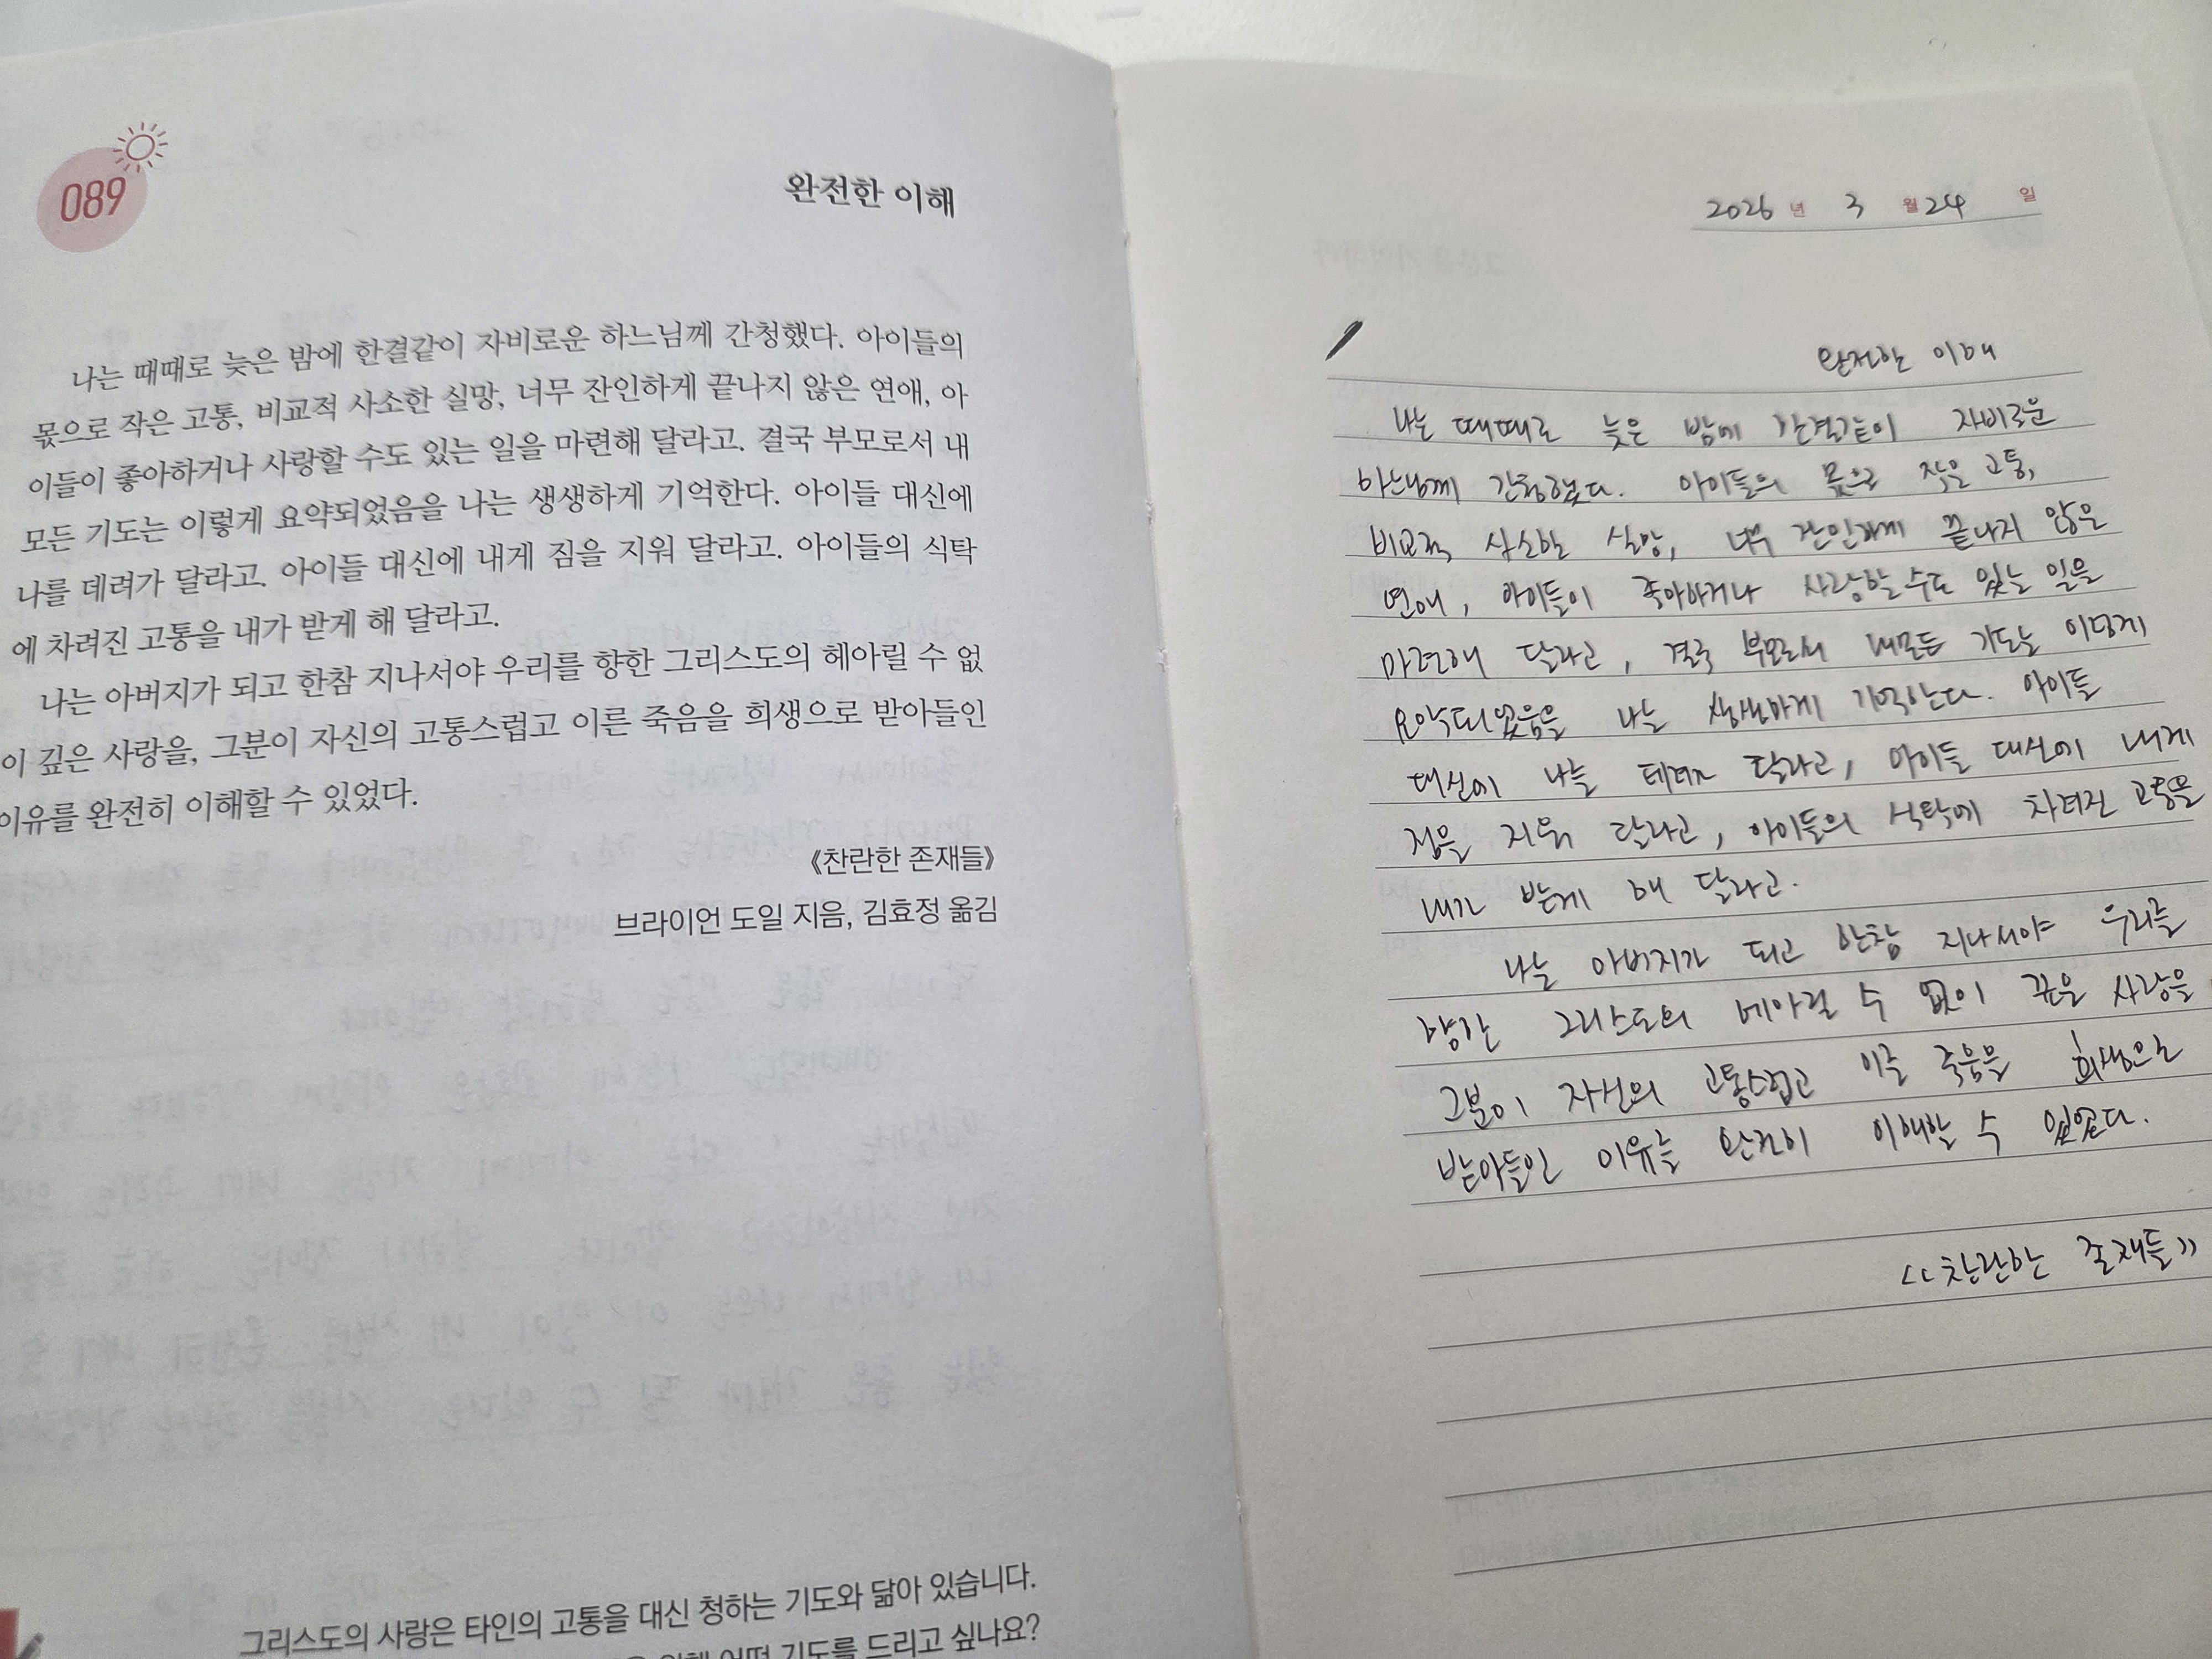 089
완전한 이해
나는 때때로 늦은 밤에 한결같이 자비로운 하느님께 간청했다. 아이들의
몫으로 작은 고통, 비교적 사소한 실망, 너무 잔인하게 끝나지 않은 연애, 아
이들이 좋아하거나 사랑할 수도 있는 일을 마련해 달라고. 결국 부모로서 내
모든 기도는 이렇게 요약되었음을 나는 생생하게 기억한다. 아이들 대신에
나를 데려가 달라고. 아이들 대신에 내게 짐을 지워 달라고. 아이들의 식탁
에 차려진 고통을 내가 받게 해 달라고.
나는 아버지가 되고 한참 지나서야 우리를 향한 그리스도의 헤아릴 수 없
이 깊은 사랑을, 그분이 자신의 고통스럽고 이른 죽음을 희생으로 받아들인
이유를 완전히 이해할 수 있었다.
《찬란한 존재들》
브라이언 도일 지음, 김효정 옮김
그리스도의 사랑은 타인의 고통을 대신 청하는 기도와 닮아 있습니다.
어떤 기도를 드리고 싶나요?
2026 년 3 월 24 일
완전한 이해
나는 때때로 늦은 밤에 한결같이 자비로운
하느님께 간청했다. 아이들의 몫으로 작은 고통,
비교적 사소한 실망, 너무 잔인하게 끝나지 않은
연애, 아이들이 좋아하거나 사랑할 수도 있는 일을
마련해 달라고, 결국 부모로서 내모든 기도는 이렇게
요약되었음을 나는 생생하게 기억한다. 아이들
대신에 나를 데려가 달라고, 아이들 대신에 내게
짐을 지워 달라고, 아이들의 식탁에 차려진 고통을
내가 받게 해 달라고.
나는 아버지가 되고 한참 지나서야 우리를
향한 그리스도의 헤아릴 수 없이 깊은 사랑을
그분이 자신의 고통스럽고 이른 죽음을 희생으로
받아들인 이유를 완전히 이해할 수 있었다.
<<찬란한 존재들>>